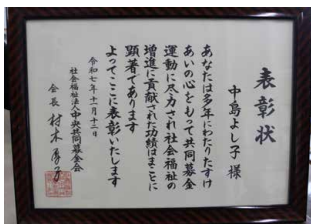 表彰状
中島よし子 様
あなたは多年にわたりたすけ
あいの心をもって共同募金
運動に尽力され社会福祉の
増進に貢献された功績はまことに
顕著であります
よってここに表彰いたします
令和七年十一月十二日
社会福祉法人中央共同募金会
会長 村木厚子